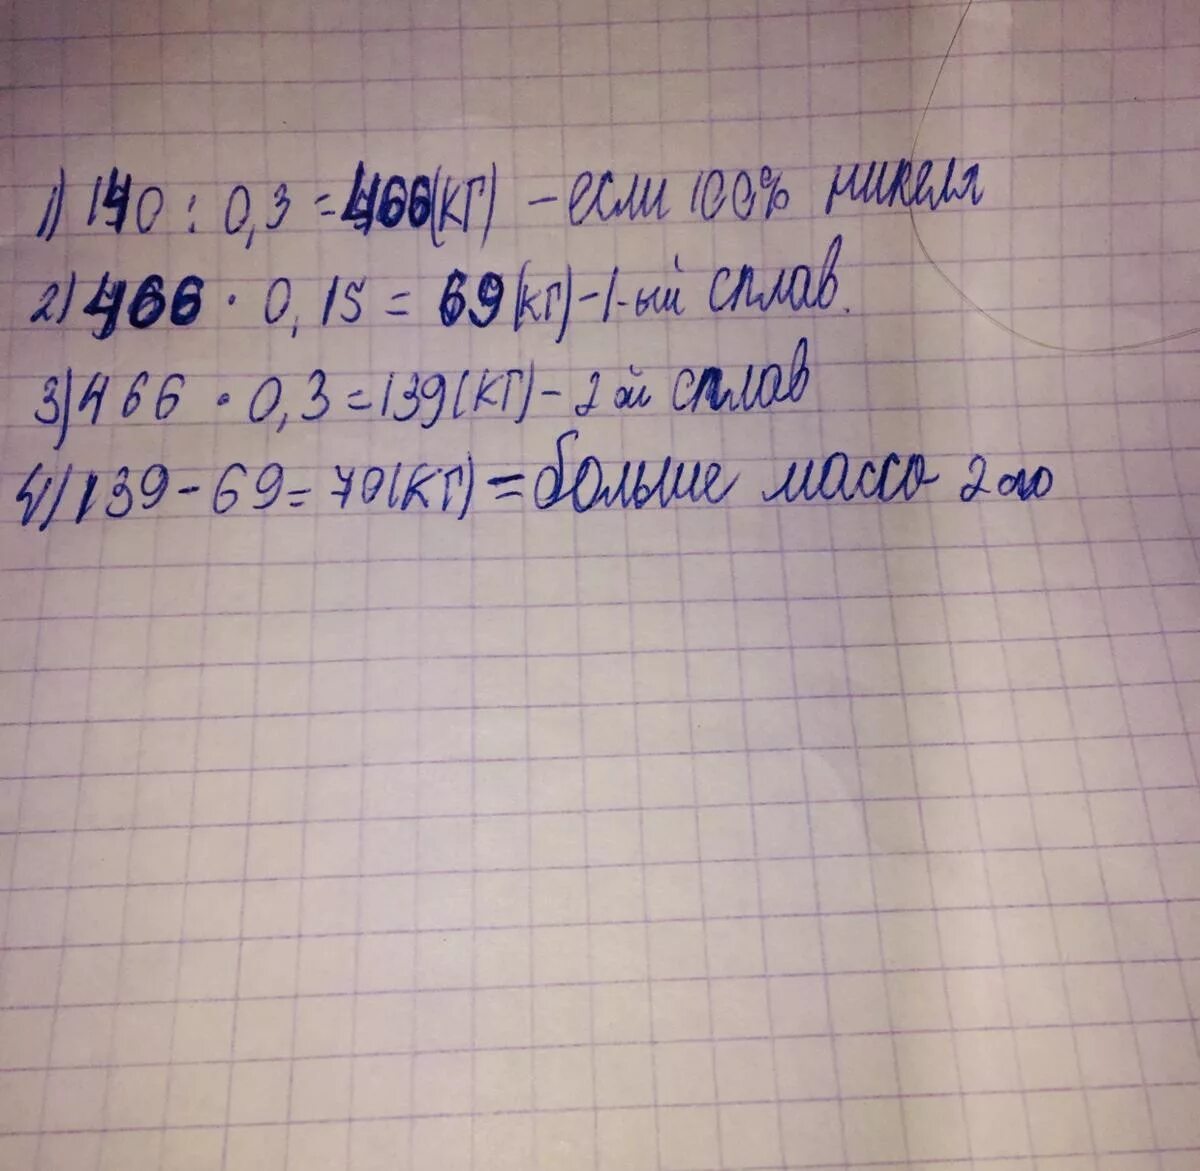 1) 140 : 0,3 = 466 (кг) - если 100% никеля
2) 466 · 0,15 = 69 (кг) - 1-ый сплав.
3) 466 · 0,3 = 139 (кг) - 2 ой сплав
4) 139 - 69 = 70 (кг) = больше массо 2ого